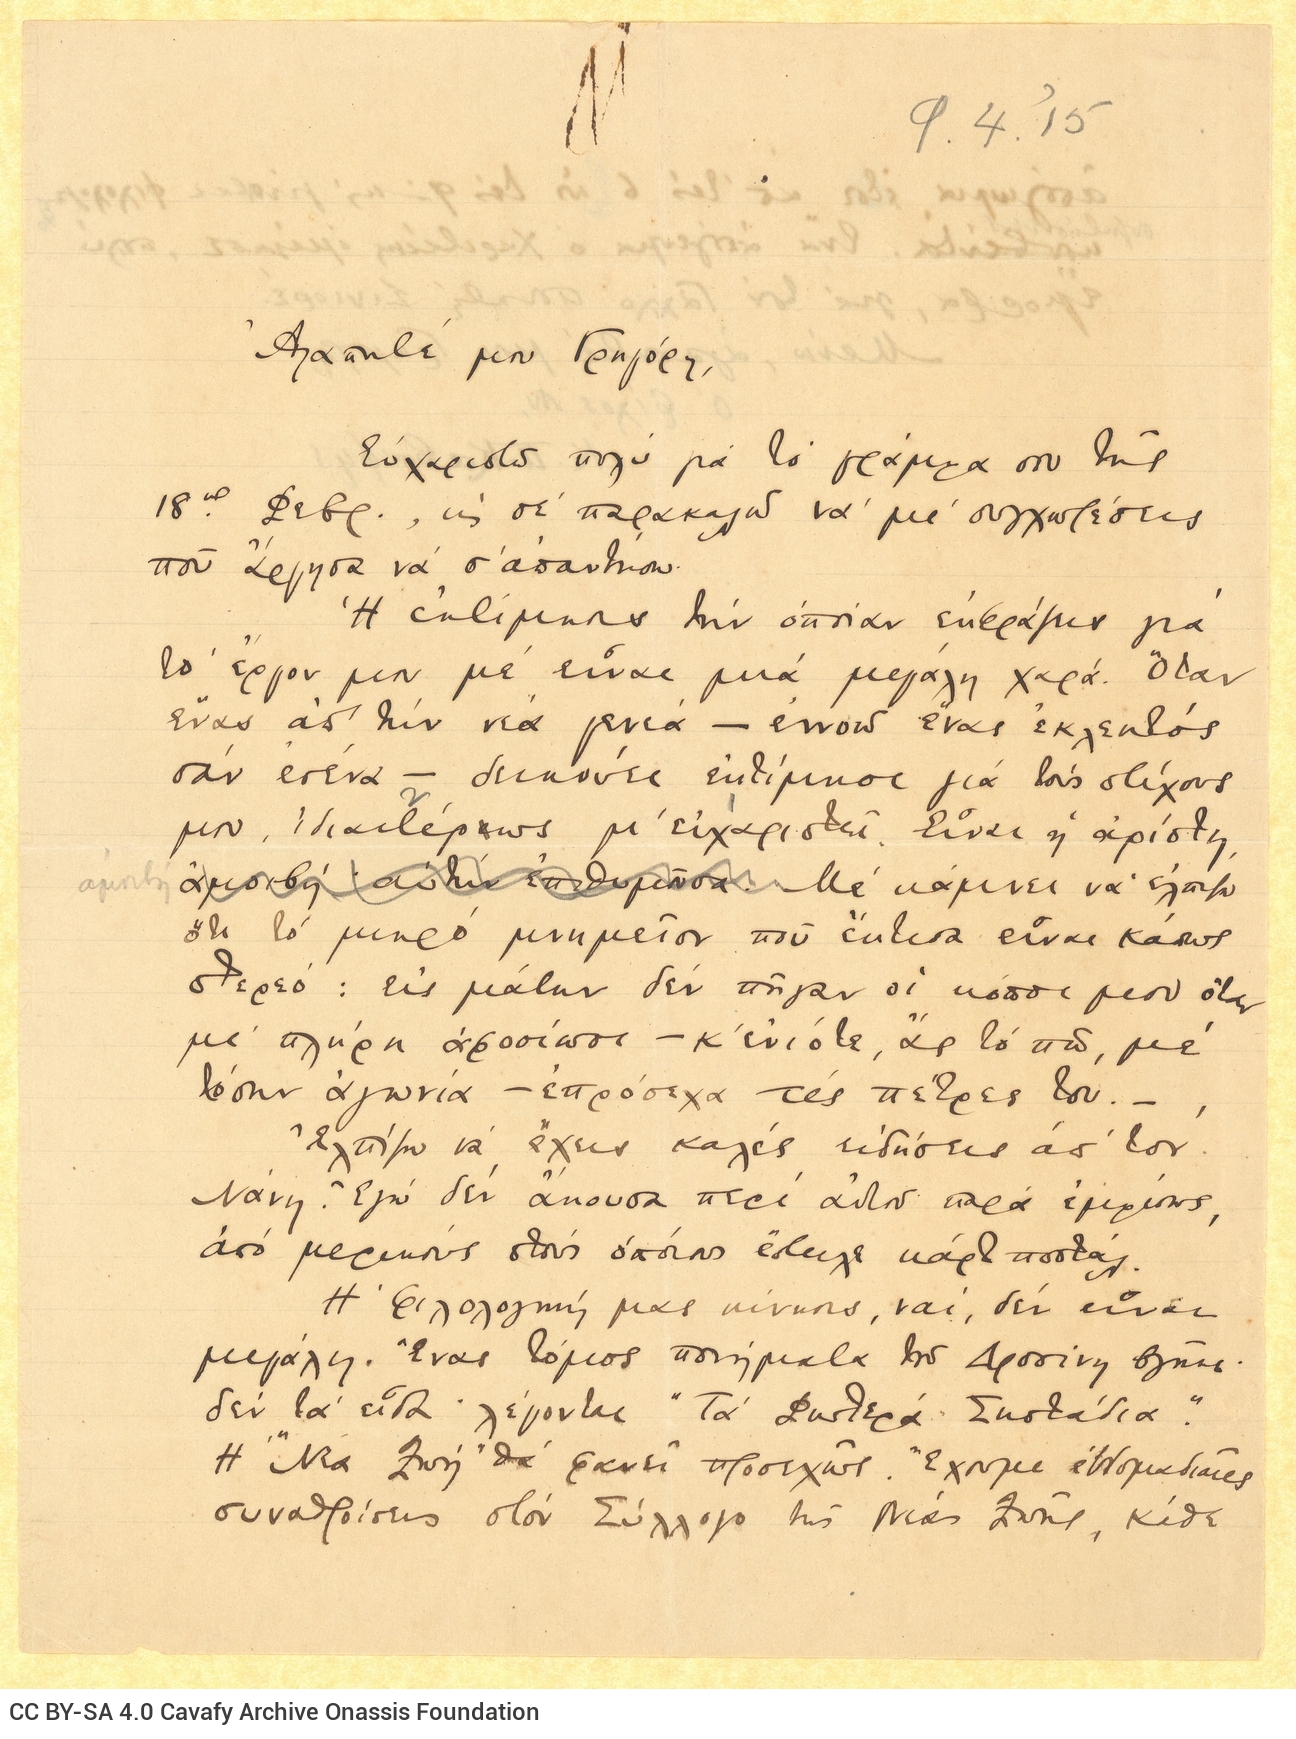 9.4.'15
Ἀγαπητέ μου Γρηγόρη,
Εὐχαριστῶ πολύ γιά τό γράμμα σου τῆς
18ης Φεβρ., κ̀ σέ παρακαλῶ νά μέ συγχωρέσεις
ποῦ ἄργησα νά σ' ἀπαντήσω.
Ἡ ἐκτίμησις τήν ὁποίαν ἐκφράζεις γιά
τό ἔργον μου μέ εἶναι μιά μεγάλη χαρά. Ὅταν
ἕνας ἀπ' τήν νέα γενεά — ἐννοῶ ἕνας ἐκλεκτός
σάν ἐσένα — δεικνύει ἐκτίμησι γιά τούς στίχους
μου, ἰδιαιτέρως μ' εὐχαριστεῖ. Εἶναι ἡ ἀρίστη
ἀμοιβή ἀμοιβή αὐτήν ἐπιθυμοῦσα. Μέ κάμνει νά ἐλπίζω
ὅτι τό μικρό μνημεῖον ποῦ ἔκτισα εἶναι κάπως
στερεό: εἰς μάτην δέν πῆγαν οἱ κόποι μου ὅταν
μέ πλήρη ἀφοσίωσι — κ' ἐνίοτε, ἄς τό πῶ, μέ
τόσην ἀγωνία — ἐπρόσεχα τές πέτρες του. —
Ἐλπίζω νά ἔχεις καλές εἰδήσεις ἀπ' τόν
Νάνη. Ἐγώ δέν ἄκουσα περί αὐτοῦ παρά ἐμμέσως,
ἀπό μερικούς στούς ὁποίους ἔστειλε κάρτ ποστάλ.
Ἡ φιλολογική μας κίνησις, ναί, δέν εἶναι
μεγάλη. Ἕνας τόμος ποιήματα τοῦ Δροσίνη βγῆκε·
δέν τά εἶδα· λέγονται "Τά Φωτερά Σκοτάδια".
Ἡ "Νέα Ζωή" θά φανεῖ προσεχῶς. Ἔχουμε ἑβδομαδιαῖες
συναθροίσεις στόν Σύλλογο τῆς Νέας Ζωῆς, κάθε
CC BY-SA 4.0 Cavafy Archive Onassis Foundation